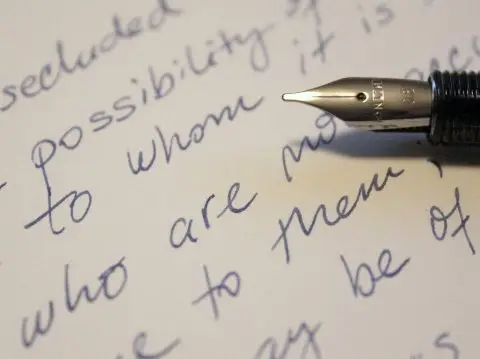 secluded
possibility of
to whom it is
who are no
to them,
be of
ay